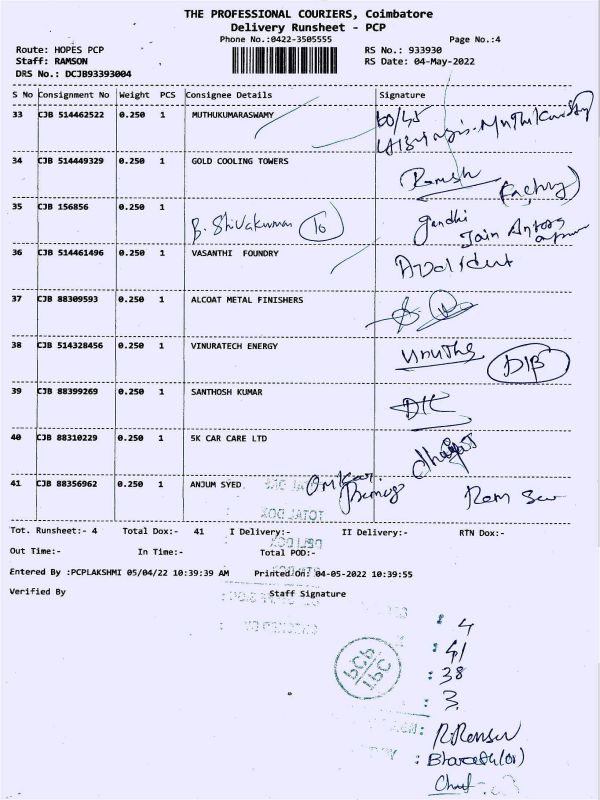 THE PROFESSIONAL COURIERS, Coimbatore
Delivery Runsheet - PCP
Phone No.:0422-3505555
Page No.:4
Route: HOPES PCP
RS No.: 933930
Staff: RAMSON
RS Date: 04-May-2022
DRS No.: DCJB93393004
S No Consignment No Weight PCS Consignee Details Signature
33 CJB 514462522 0.250 1 MUTHUKUMARASWAMY
34 CJB 514449329 0.250 1 GOLD COOLING TOWERS Ramesh (Factory)
35 CJB 156856 0.250 1 B. Shivakumar To Gandhi
Jain
36 CJB 514461496 0.250 1 VASANTHI FOUNDRY
37 CJB 88309593 0.250 1 ALCOAT METAL FINISHERS
38 CJB 514328456 0.250 1 VINURATECH ENERGY
39 CJB 88399269 0.250 1 SANTHOSH KUMAR
40 CJB 88310229 0.250 1 5K CAR CARE LTD
41 CJB 88356962 0.250 1 ANJUM SYED
Tot. Runsheet:- 4 Total Dox:- 41 I Delivery:- II Delivery:- RTN Dox:-
Out Time:- In Time:- Total POD:-
Entered By :PCPLAKSHMI 05/04/22 10:39:39 AM Printed On: 04-05-2022 10:39:55
Verified By Staff Signature
: 4
: 41
: 38
: 3